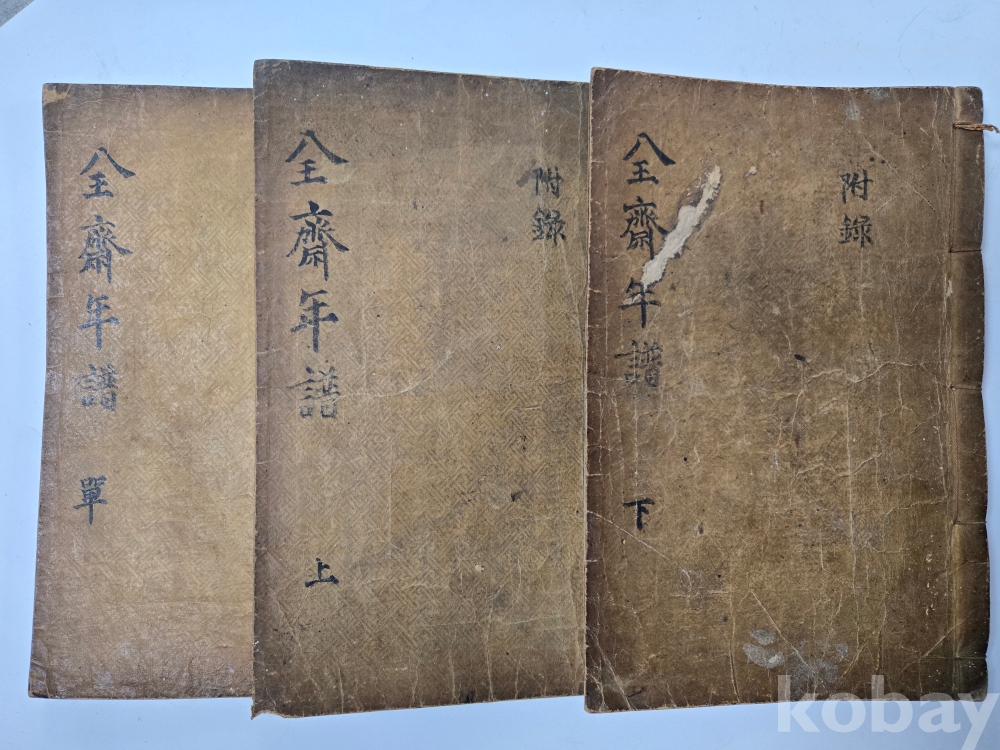 全齋年譜
單
全齋年譜
附錄
上
全齋年譜
附錄
下
kobay